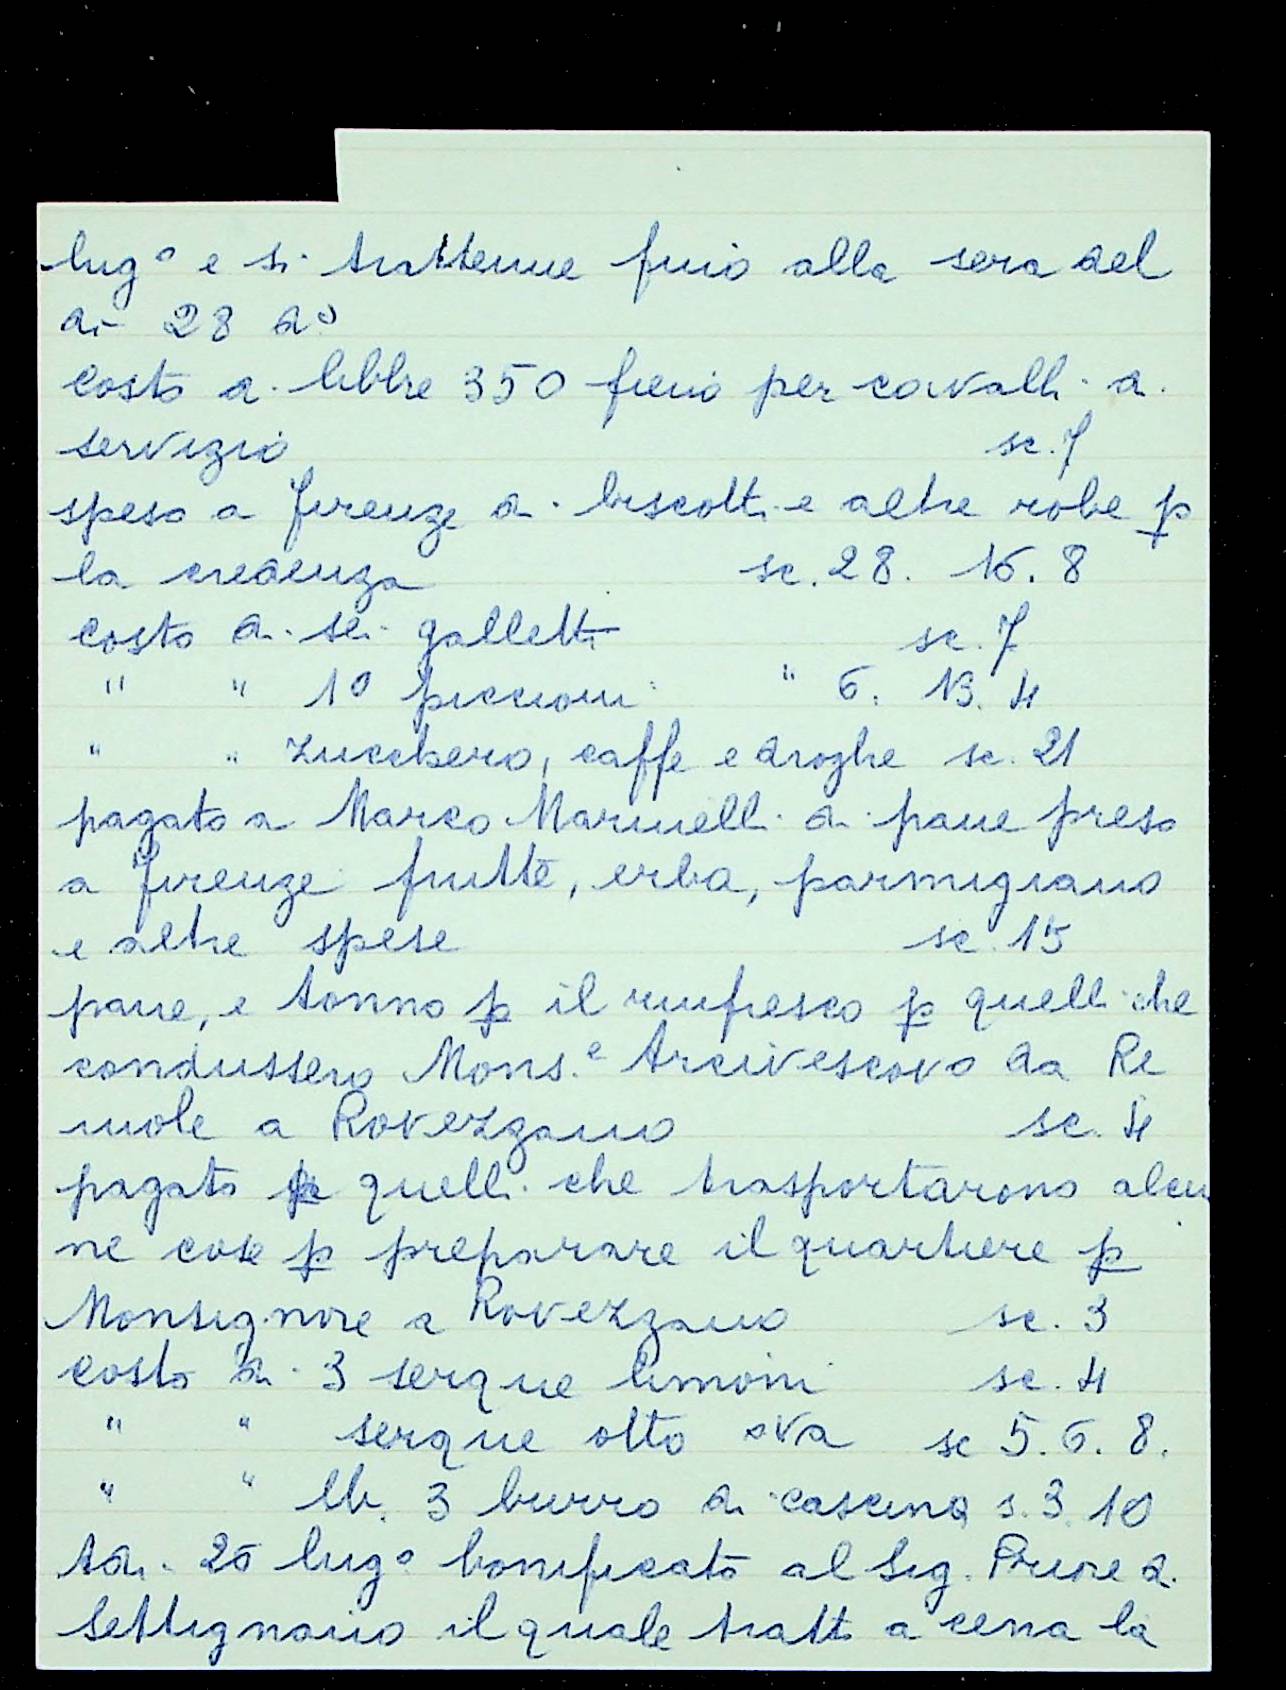 lug° e si trattenne fino alla sera del
di 28 d°
costo di libbre 350 fieno per cavalli di
servizio sc. 7
speso a Firenze di biscotti e altre robe p
la credenza sc. 28. 16. 8
costo di sei galletti sc. 7
" " 10 piccioni " 6. 13. 4
" " zucchero, caffe e droghe sc. 21
pagato a Marco Marinelli di pane preso
a Firenze frutte, erba, parmigiano
e altre spese sc. 15
pane, e tonno p il rinfresco p quelli che
condussero Mons.e Arcivescovo da Re
mole a Rovezzano sc. 4
pagato p quelli che trasportarono alcu
ne cose p preparare il quartiere p
Monsignore a Rovezzano sc. 3
costo di 3 serque limoni sc. 4
" " serque otto ova sc 5. 6. 8.
" " lb. 3 burro di cascina s. 3. 10
Adi 25 lug° bonificato al Sig. Priore di
Settignano il quale trattò a cena la